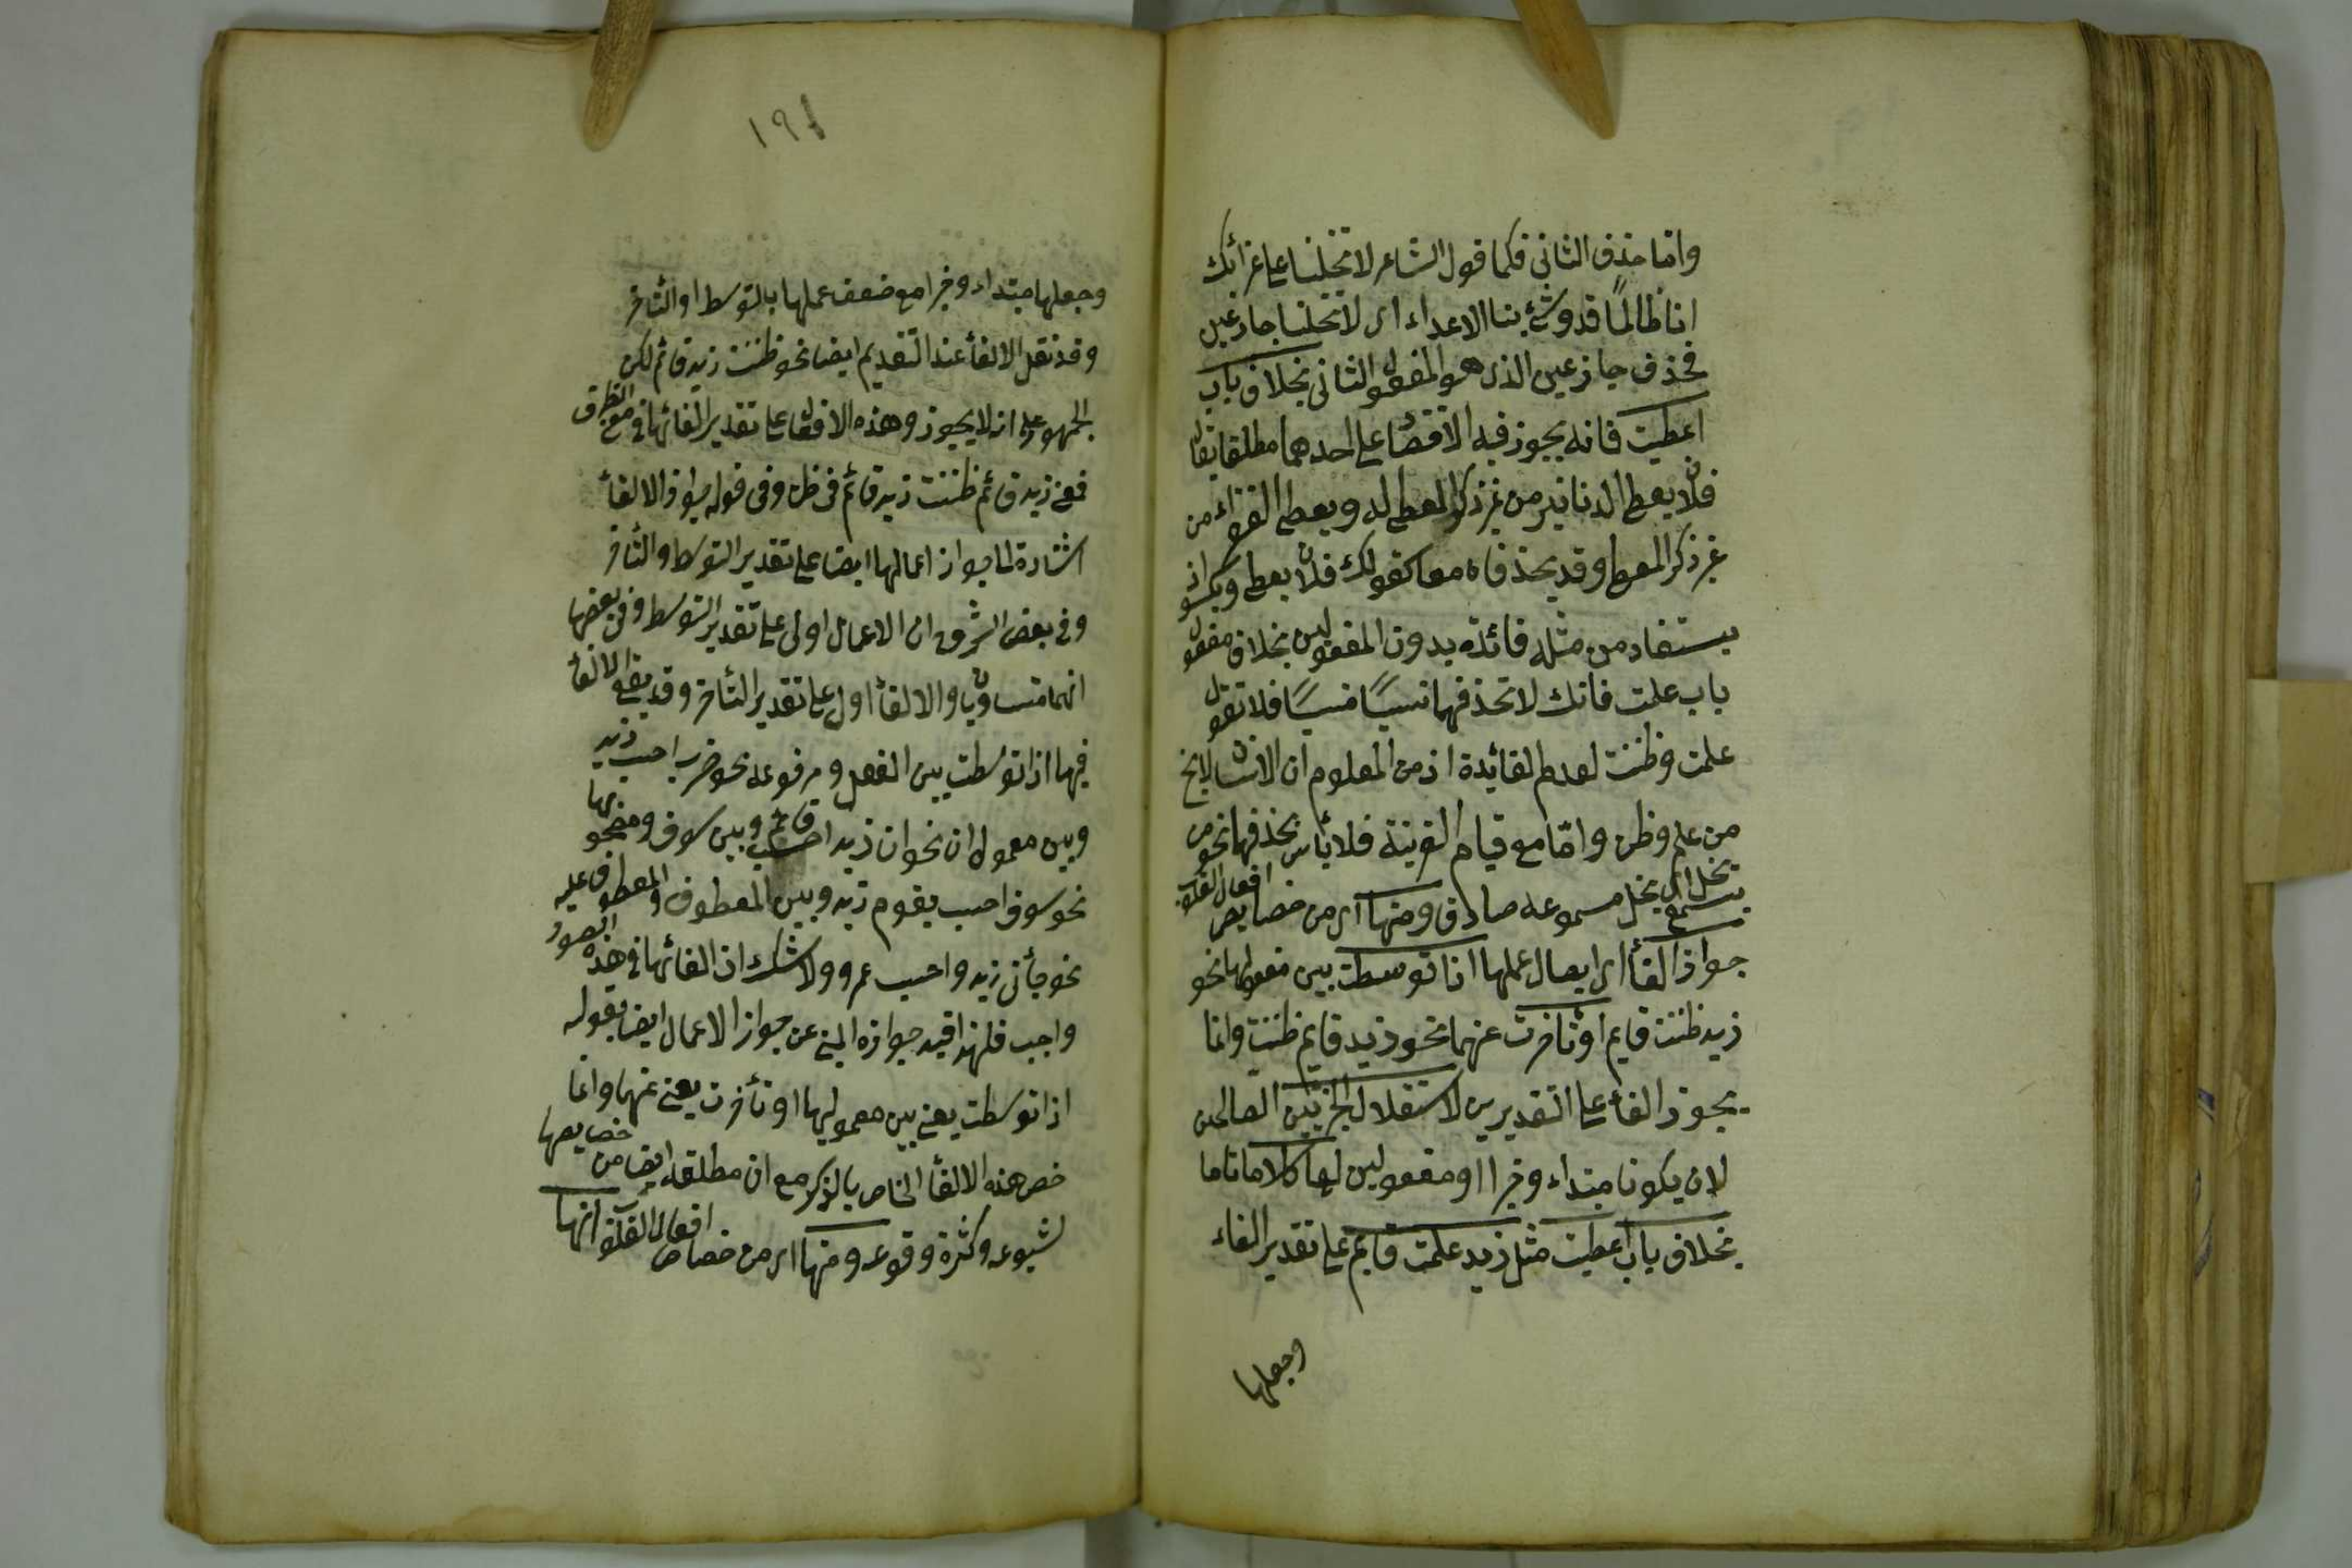 واما حذف الثانى فكما قول الشاعر لا تخلنا على غرائك
انا طالمًا قد وشى بنا الاعداء اى لا تخلنا جازعين
فحذف جازعين الذى هو المفعول الثانى بخلاف باب
اعطيت فانه يجوز فيه الاقتصار على احدهما مطلقا يقال
فلان يعطى الدنانير من غير ذكر المعطى له ويعطى الفقراء من
غير ذكر المعطى وقد يحذفان معا كقولك فلان يعطى ويكسو اذ
يستفاد من مثله فائدة بدون المفعولين بخلاف مفعولى
باب علمت فانك لا تحذفهما نسيًا منسيًا فلا تقول
علمت وظننت لعدم الفائدة اذ من المعلوم ان الانسان لا يخ
من علم وظن وامّا مع قيام القرينة فلا بأس بحذفهما نحو من
يسمع يخل اى يخل مسموعه صادق ومنها اى من خصايص افعال القلوب
جواز الغأ اى ابطال عملها اذا توسطت بين مفعوليها نحو
زيد ظننت قايم او تأخرت عنهما نحو زيد قايم ظننت وانما
يجوز الغأ على التقديرين لاستقلال الجزئين الصالحين
لان يكونا مبتداء وخبرا او مفعولين لها كلاما تاما
بخلاف باب اعطيت مثل زيد علمت قايم على تقدير الغاء
وجعلها
١٩١
وجعلها مبتداء وخبرا مع ضعف عملها بالتوسط او التأخر
وقد نقل الالغأ عند التقديم ايضا نحو ظننت زيد قائم لكن
الجمهور على انه لا يجوز وهذه الافعال على تقدير الغائها فى معنى الظرف
فمعنى زيد قائم ظننت زيد قائم فى ظنى وفى قوله جواز الالغأ
اشارة الى جواز اعمالها ايضا على تقدير التوسط والتأخر
وفى بعض الشروح ان الاعمال اولى على تقدير التوسط وفى بعضها
انهما متساويان والالغأ اولى على تقدير التأخر وقد يقع الالغأ
فيها اذا توسطت بين الفعل ومرفوعه نحو ضرب احسب زيد
وبين معمولى ان نحو ان زيدا احسب قائم وبين سوف ومصحوبها
نحو سوف احسب يقوم زيد وبين المعطوف والمعطوف عليه
نحو جأنى زيد واحسب عمرو ولا شك ان الغائها فى هذه الصور
واجب فلهذا قيد جوازه المنبئ عن جواز الاعمال ايضا بقوله
اذا توسطت يعنى بين معموليها او تأخرت يعنى عنهما وانما
خص هذه الالغأ الخاص بالذكر مع ان مطلقه ايضا من خصايصها
لشيوعه وكثرة وقوعه ومنها اى من خصائص افعال القلوب انها